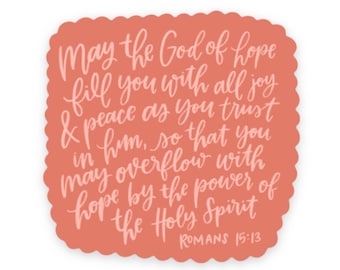 May the God of hope
fill you with all joy
& peace as you trust
in him, so that you
may overflow with
hope by the power of
the Holy Spirit
ROMANS 15:13